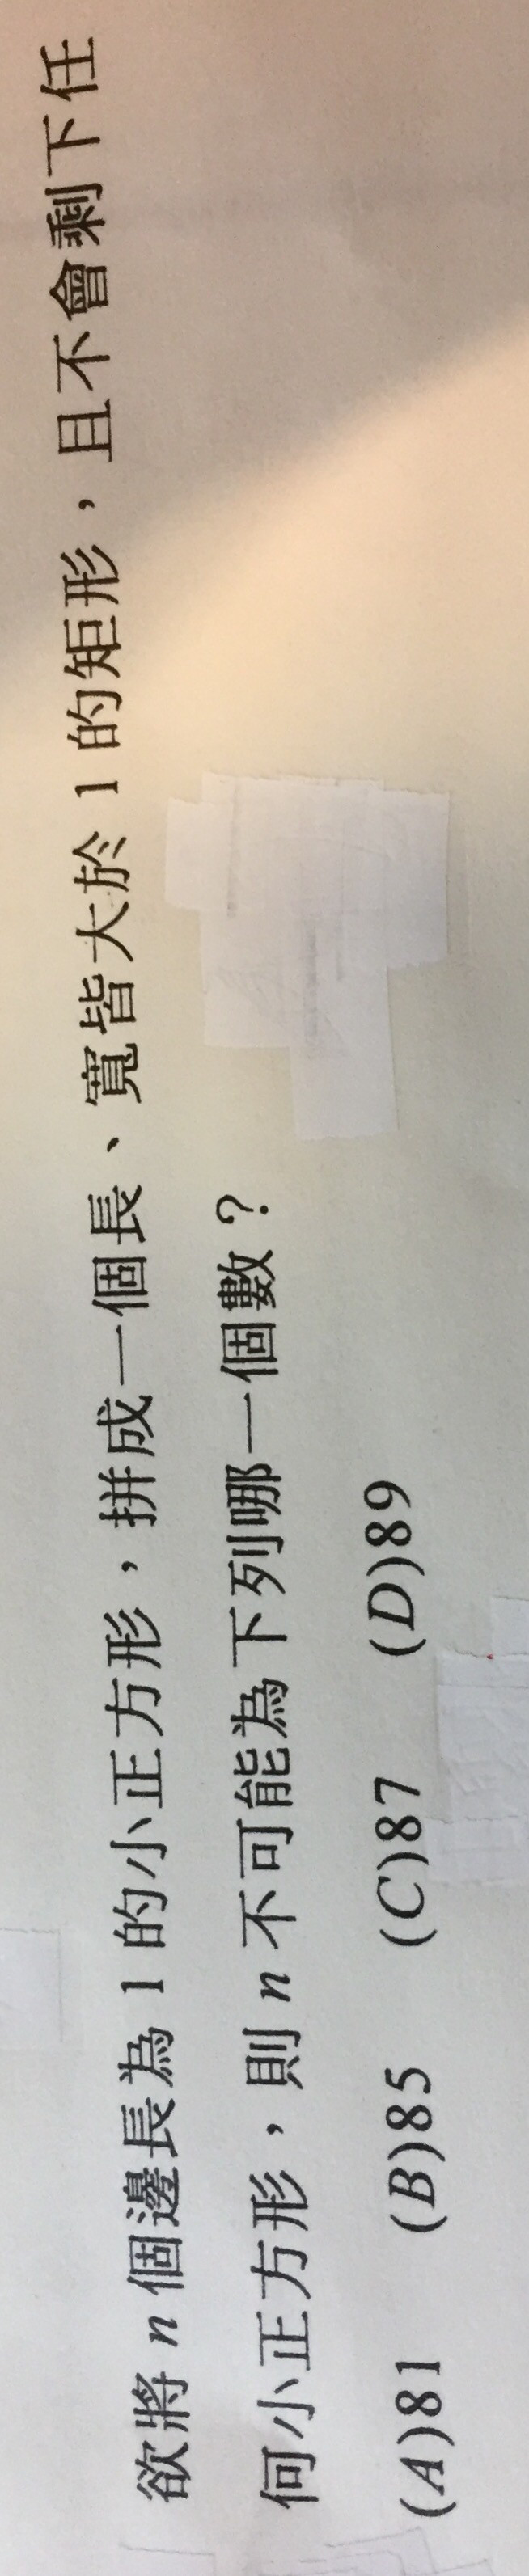 欲將 n 個邊長為 1 的小正方形，拼成一個長、寬皆大於 1 的矩形，且不會剩下任
何小正方形，則 n 不可能為下列哪一個數？
(A)81 (B)85 (C)87 (D)89